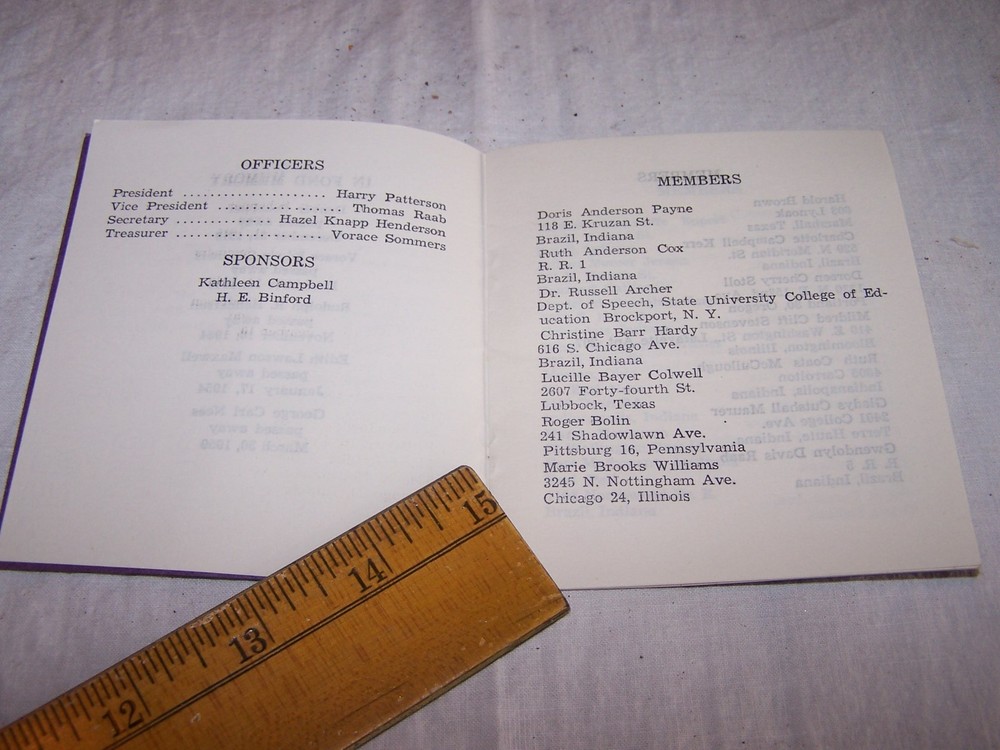 OFFICERS
President ..................... Harry Patterson
Vice President .................... Thomas Raab
Secretary .............. Hazel Knapp Henderson
Treasurer .................... Vorace Sommers
SPONSORS
Kathleen Campbell
H. E. Binford
MEMBERS
Doris Anderson Payne
118 E. Kruzan St.
Brazil, Indiana
Ruth Anderson Cox
R. R. 1
Brazil, Indiana
Dr. Russell Archer
Dept. of Speech, State University College of Ed-
ucation Brockport, N. Y.
Christine Barr Hardy
616 S. Chicago Ave.
Brazil, Indiana
Lucille Bayer Colwell
2607 Forty-fourth St.
Lubbock, Texas
Roger Bolin
241 Shadowlawn Ave.
Pittsburg 16, Pennsylvania
Marie Brooks Williams
3245 N. Nottingham Ave.
Chicago 24, Illinois
12 13 14 15